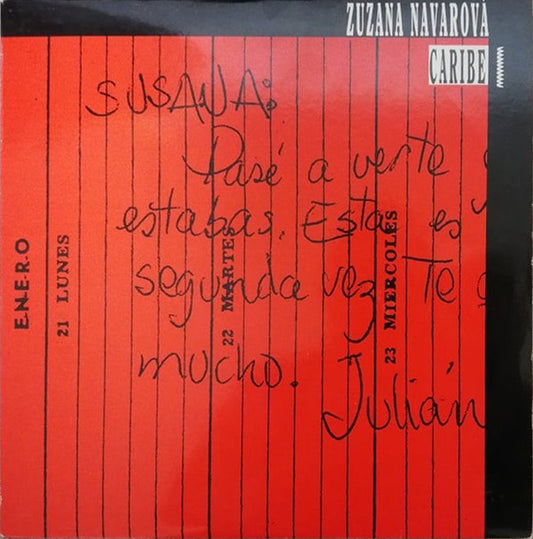 ZUZANA NAVAROVÁ
CARIBE
SUSANA:
Pasé a verte
estabas. Esta es
segunda vez. Te
mucho.
Julián
E-N-E-R-O
21 LUNES
22 MARTES
23 MIERCOLES